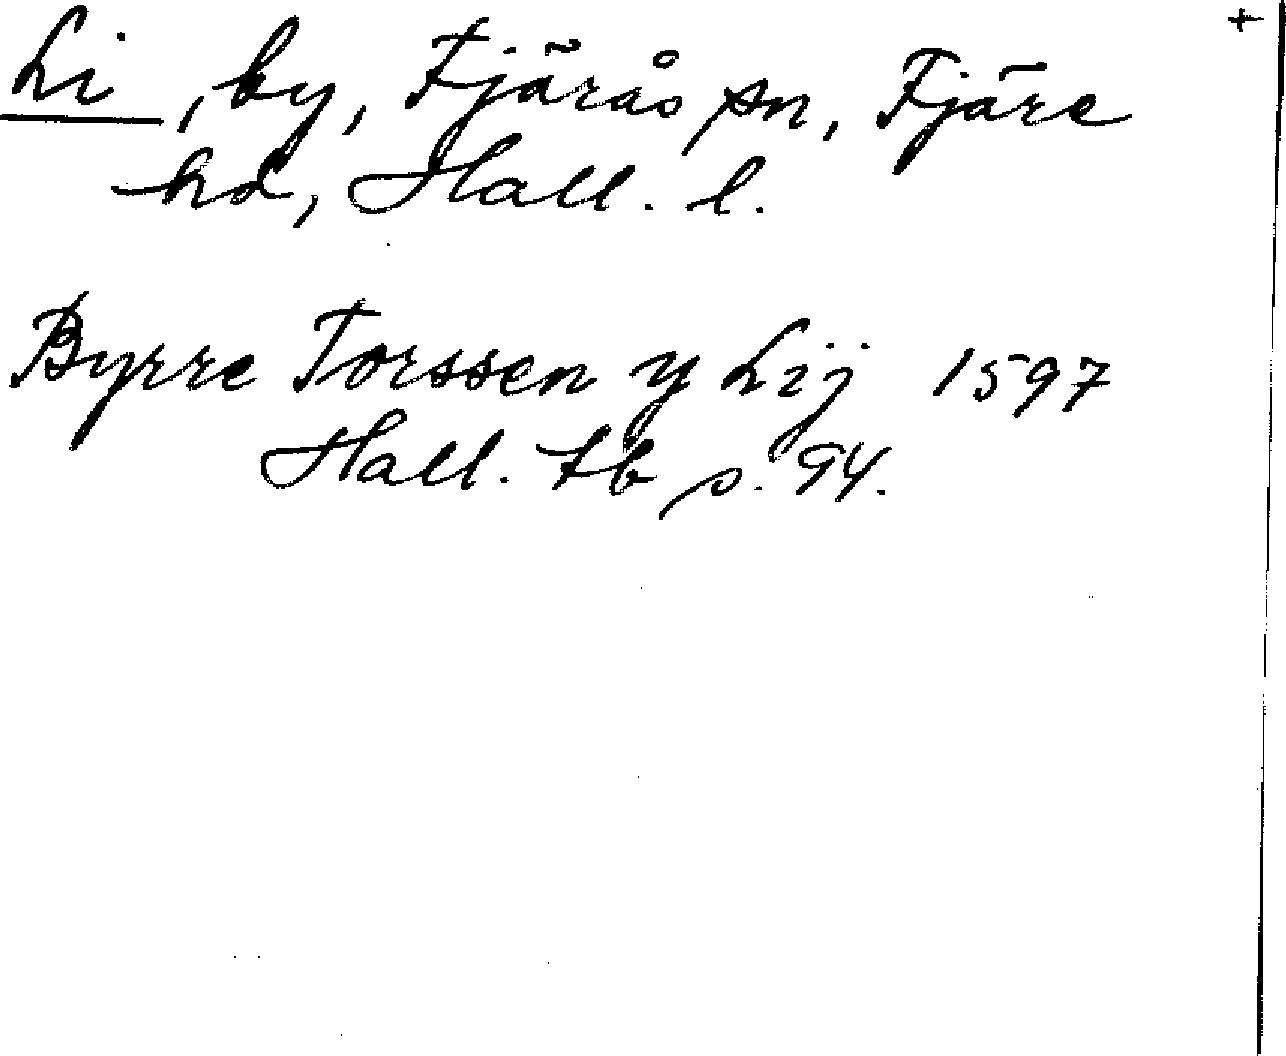 +
Li, by, Fjärås sn, Fjäre
hd, Hall. l.
Byrre Torssen y Lij 1597
Hall. tb s. 94.